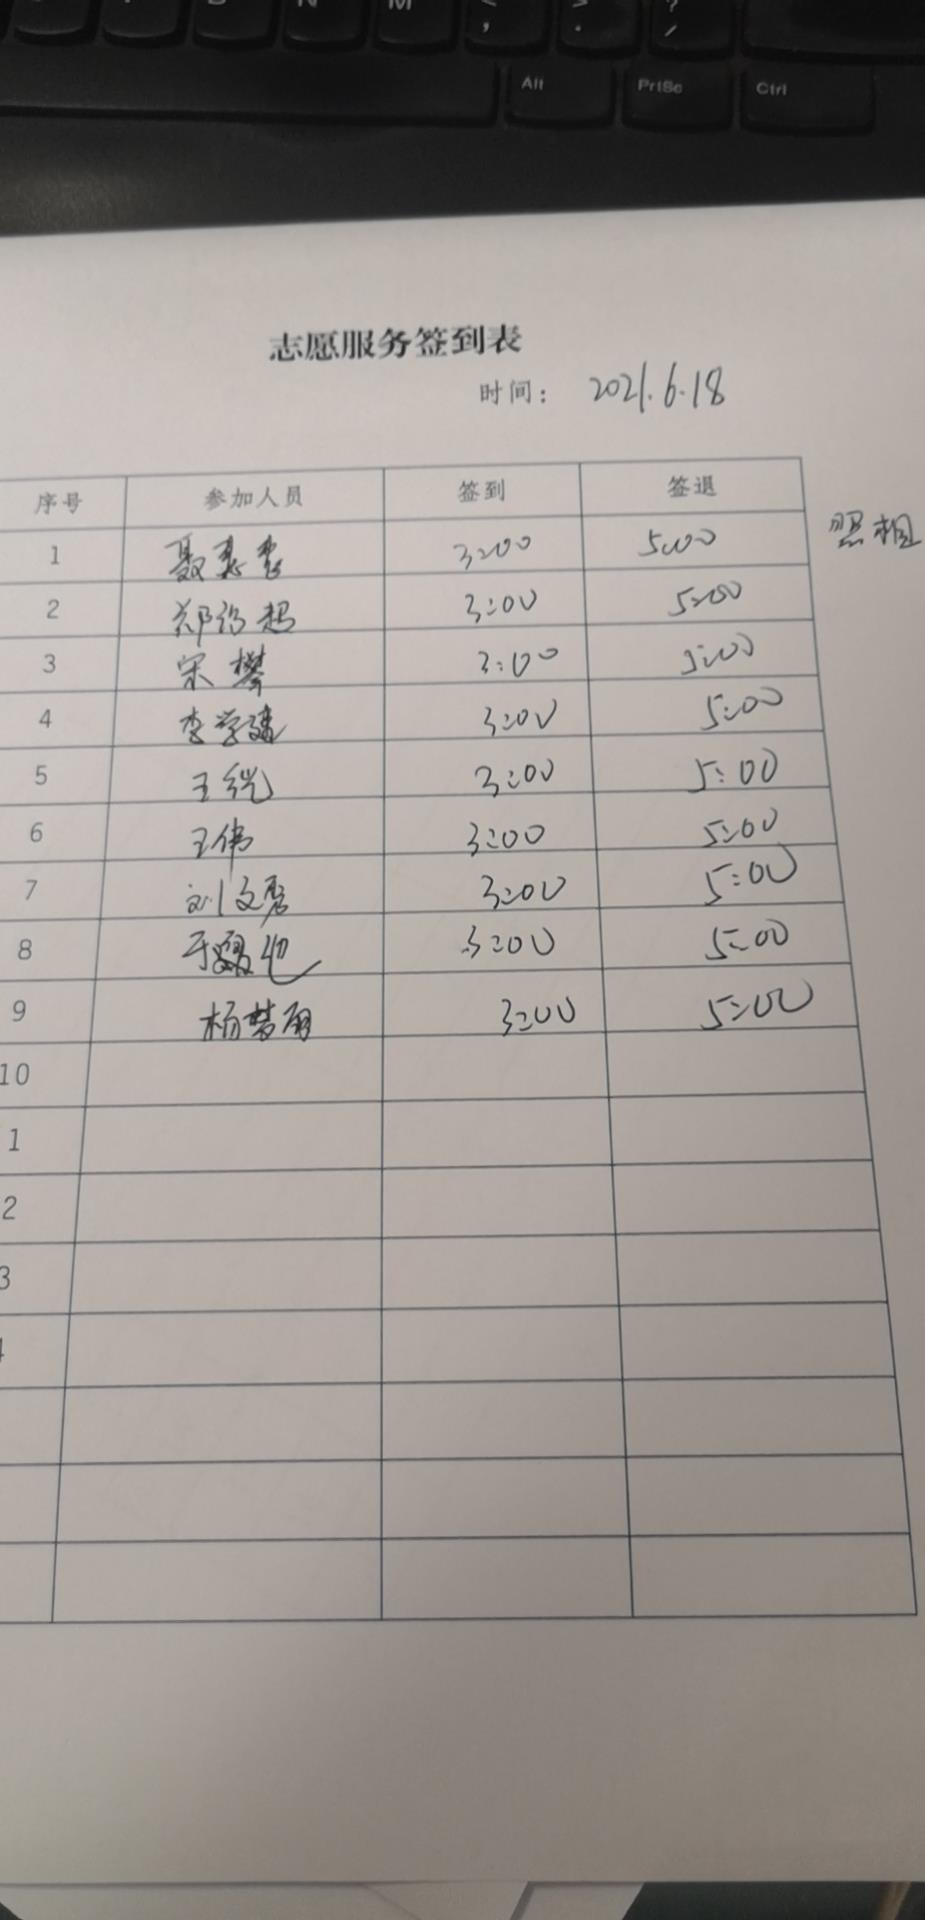 N M < > ?
, . /
Alt PrtSc Ctrl
志愿服务签到表
时间: 2021.6.18
序号 参加人员 签到 签退
1 聂 3:00 5:00 照相
2 郑 超 3:00 5:00
3 宋攀 3:00 5:00
4 李学建 3:00 5:00
5 王 3:00 5:00
6 王伟 3:00 5:00
7 刘文 3:00 5:00
8 于 3:00 5:00
9 杨梦雨 3:00 5:00
10
1
2
3